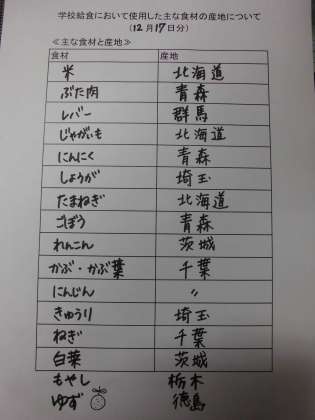 学校給食において使用した主な食材の産地について
(12月17日分)
≪主な食材と産地≫
食材 産地
米 北海道
ぶた肉 青森
レバー 群馬
じゃがいも 北海道
にんにく 青森
しょうが 埼玉
たまねぎ 北海道
ごぼう 青森
れんこん 茨城
かぶ・かぶ葉 千葉
にんじん 〃
きゅうり 埼玉
ねぎ 千葉
白菜 茨城
もやし 栃木
ゆず 徳島